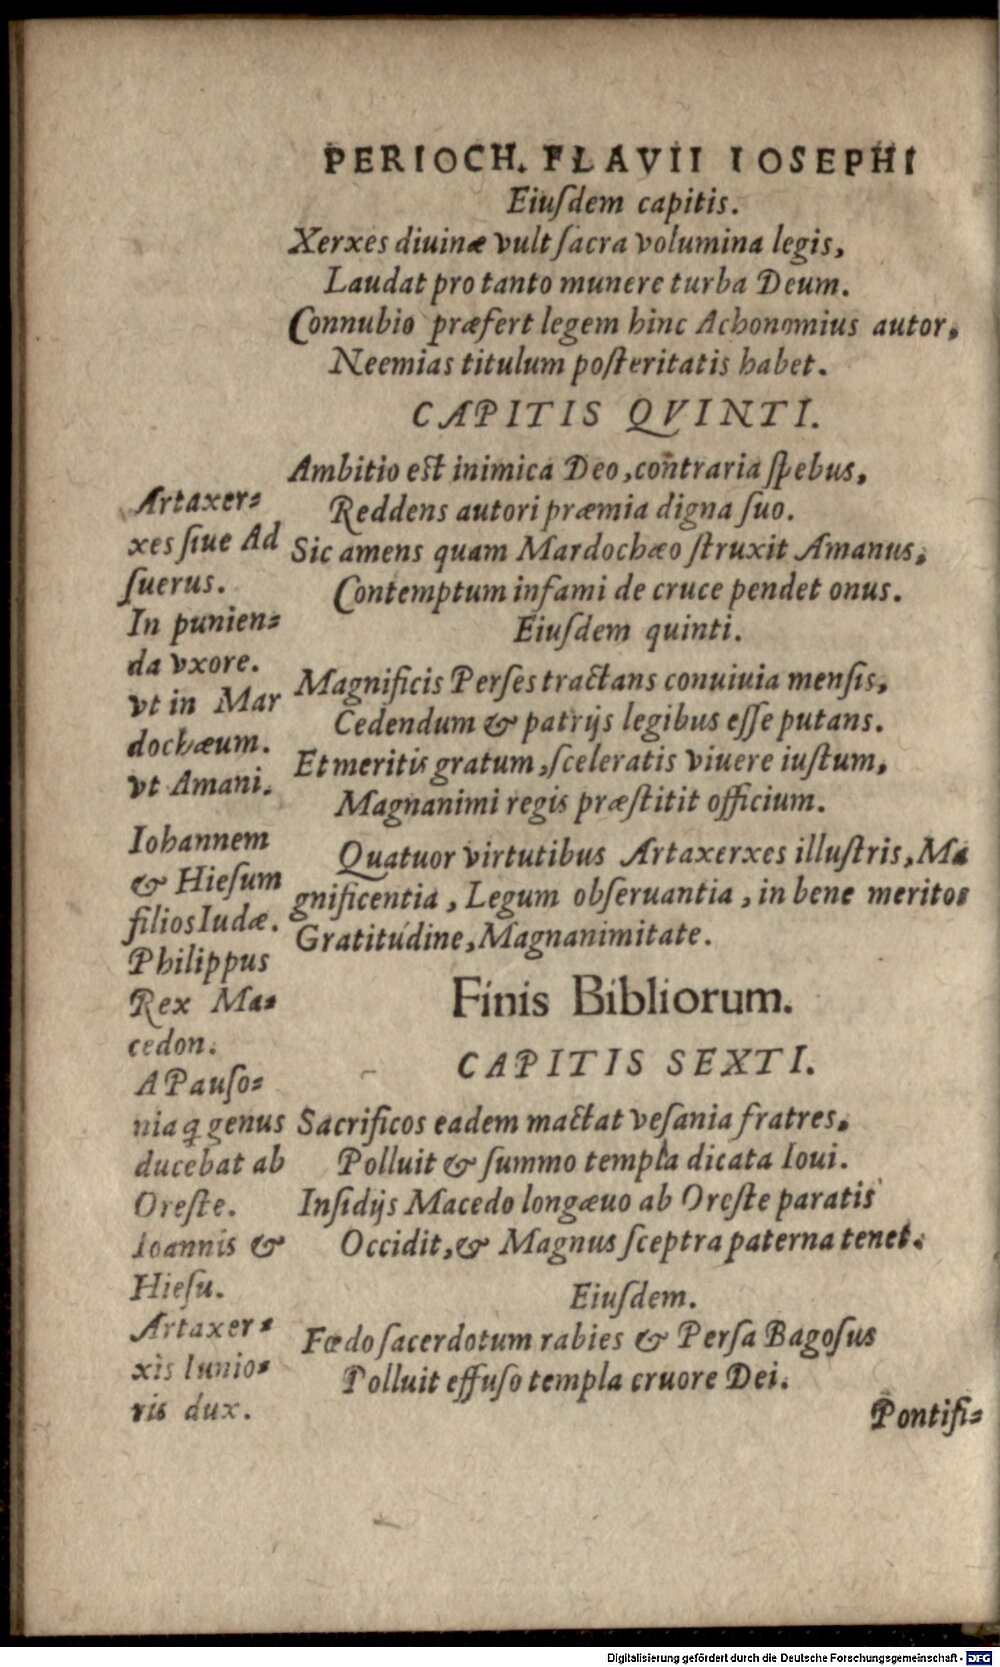 PERIOCH. FLAVII IOSEPHI
Eiuſdem capitis.
Xerxes diuinæ vult ſacra volumina legis,
Laudat pro tanto munere turba Deum.
Connubio præfert legem hinc Achonomius autor,
Neemias titulum poſteritatis habet.
CAPITIS QVINTI.
Ambitio est inimica Deo, contraria ſpebus,
Reddens autori præmia digna ſuo.
Sic amens quam Mardochæo ſtruxit Amanus,
Contemptum infami de cruce pendet onus.
Eiuſdem quinti.
Magnificis Perſes tractans conuiuia menſis,
Cedendum & patrijs legibus eſſe putans.
Et meritis gratum, ſceleratis viuere iuſtum,
Magnanimi regis præſtitit officium.
Quatuor virtutibus Artaxerxes illuſtris, Ma
gnificentia, Legum obſeruantia, in bene meritos
Gratitúdine, Magnanimitate.
Finis Bibliorum.
CAPITIS SEXTI.
Sacrificos eadem mactat veſania fratres,
Polluit & ſummo templa dicata Ioui.
Inſidijs Macedo longæuo ab Oreſte paratis
Occidit, & Magnus ſceptra paterna tenet.
Eiuſdem.
Fœdo ſacerdotum rabies & Perſa Bagoſus
Polluit effuſo templa cruore Dei.
Pontifi=
Artaxer=
xes ſiue Ad
ſuerus.
In punien=
da vxore.
vt in Mar
dochæum.
vt Amani.
Iohannem
& Hieſum
filios Iudæ.
Philippus
Rex Ma=
cedon.
A Pauſo=
nia q genus
ducebat ab
Oreſte.
Ioannis &
Hieſu.
Artaxer=
xis Iunio=
ris dux.
Digitalisierung gefördert durch die Deutsche Forschungsgemeinschaft - DFG